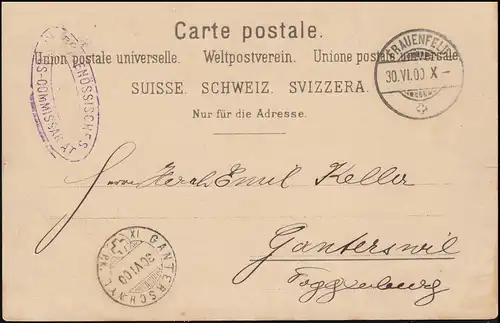 Carte postale.
Union postale universelle. Weltpostverein. Unione postale universale.
SUISSE. SCHWEIZ. SVIZZERA.
Nur für die Adresse.
FRAUENFELD
30.VI.00 X –
Emil Keller
Ganterswil
Toggenburg
GANTERSCHWYL
30 VI 00
XI